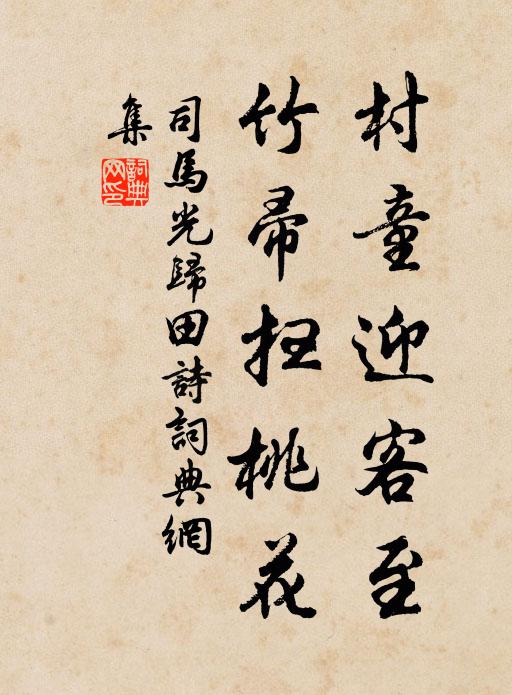 村童迎客至
竹帚扫桃花
司馬光歸田詩詞典網
集
詞典网印